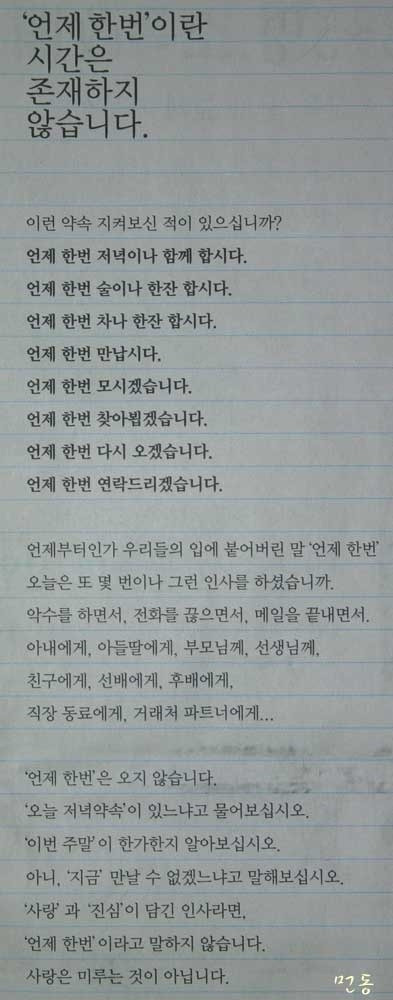 ‘언제 한번’이란
시간은
존재하지
않습니다.
이런 약속 지켜보신 적이 있으십니까?
언제 한번 저녁이나 함께 합시다.
언제 한번 술이나 한잔 합시다.
언제 한번 차나 한잔 합시다.
언제 한번 만납시다.
언제 한번 모시겠습니다.
언제 한번 찾아뵙겠습니다.
언제 한번 다시 오겠습니다.
언제 한번 연락드리겠습니다.
언제부터인가 우리들의 입에 붙어버린 말 ‘언제 한번’
오늘은 또 몇 번이나 그런 인사를 하셨습니까.
악수를 하면서, 전화를 끊으면서, 메일을 끝내면서.
아내에게, 아들딸에게, 부모님께, 선생님께,
친구에게, 선배에게, 후배에게,
직장 동료에게, 거래처 파트너에게...
‘언제 한번’은 오지 않습니다.
‘오늘 저녁약속’이 있느냐고 물어보십시오.
‘이번 주말’이 한가한지 알아보십시오.
아니, ‘지금’ 만날 수 없겠느냐고 말해보십시오.
‘사랑’ 과 ‘진심’이 담긴 인사라면,
‘언제 한번’이라고 말하지 않습니다.
사랑은 미루는 것이 아닙니다.
먼동